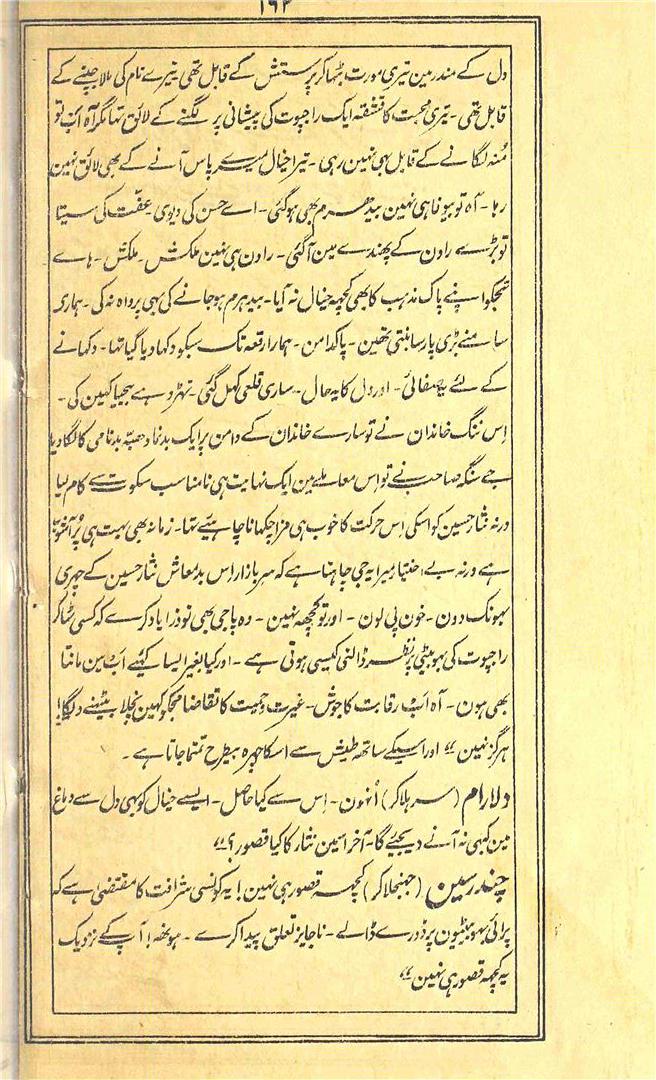 ۱۶۲
دل کے مندر مین تیری مورت بٹھاکر پرستش کے قابل تھی تیرے نام کی مالا جپنے کے
قابل تھی۔ تیری محبت کا قشقہ ایک راجپوت کی پیشانی پر لگنے کے لائق تھا مگر آہ اب تو
مُنہ لگانے کے قابل بھی نہین رہی۔ تیرا خیال میرے پاس آنے کے بھی لائق نہین
رہا۔ آہ تو بیوفا ہی نہین بیدھرم بھی ہوگئی۔ اے حسن کی دیوی عفّت کی سیتا
تو بڑے راون کے پھندے مین آگئی۔ راون ہی نہین ملکش۔ ملکش۔ ہاے
تجکو اپنے پاک مذہب کا بھی کچھہ خیال نہ آیا۔ بیدہرم ہوجانے کی بھی پرواہ نہ کی۔ ہماری
سامنے بڑی پارسا بنتی تھین۔ پاکدامن۔ ہمارا رقعہ تک سبکو دکھادیا گیا تھا۔ دکھانے
کے لئے یہ صفائی۔ اور دل کا یہ حال۔ ساری قلعی کھل گئی۔ ٹھرو ے بیحیا کہین کی۔
اِس ننگ خاندان نے تو سارے خاندان کے دامن پر ایک بدنما دھبّہ بدنامی کا لگا دیا
جے سنگہ صاحب نے تو اِس معاملے مین ایک نہایت ہی نامناسب سکوت سے کام لیا
ورنہ نثار حسین کو اسکی اِس حرکت کا خوب ہی مزا چکھانا چاہیئے تھا۔ زمانہ بھی بہت ہی پُر آشوب
ہے ورنہ بے اختیار میرا یہ جی چاہتا ہے کہ سرِ بازار اِس بدمعاش نثار حسین کے چھری
بھونک دون۔ خون پی لون۔ اور تو کچھہ نہین۔ وہ پاجی بھی تو ذرا یاد کرے کہ کسی ٹھاکر
راجپوت کی بہو بیٹی پر نظر ڈالنی کیسی ہوتی ہے۔ اور کیا بغیر ایسا کیئے اَب مین مانتا
بھی ہون۔ آہ اَب رقابت کا جوش۔ غیرت و حمیت کا تقاضا مجکو کہین نچلا بیٹھنے دیگا!
ہرگز نہین“ اور اسکے ساتھ طیش سے اسکا چہرہ بیطرح تمتما جاتا ہے۔
دلارام (سر ہلاکر) اُنھون۔ اِس سے کیا حاصل۔ ایسے خیال کو بھی دل سے دماغ
مین کبھی نہ آنے دیجئے گا۔ آخر اسمین نثار کا کیا قصور؟“
چندر سین (جھنجلاکر) کچھہ قصور ہی نہین! یہ کونسی شرافت کا مقتضی ہے کہ
پرائی بہو بیٹیون پر ڈورے ڈالے۔ ناجایز تعلق پیدا کرے۔ ہونھہ! آپ کے نزدیک
یہ کچھہ قصور ہی نہین“